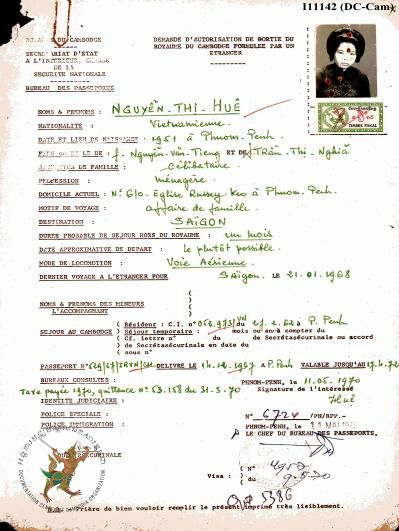 I11142 (DC-Cam)
ROYAUME DU CAMBODGE
SECRETARIAT D'ETAT
A L'INTERIEUR, CHARGE
DE LA
SECURITE NATIONALE
BUREAU DES PASSEPORTS
DEMANDE D'AUTORISATION DE SORTIE DU
ROYAUME DU CAMBODGE FORMULEE PAR UN
ETRANGER
TIMBRE FISCAL
NOMS & PRENOMS : NGUYÊN-THI-HUÊ
NATIONALITE : Vietnamienne
DATE ET LIEU DE NAISSANCE : 1951 à Phnom-Penh
DE : f. Nguyên-Văn-Tieng ET DE : Trân-Thi-Nghiã
DE FAMILLE : Célibataire
PROFESSION : ménagère
DOMICILE ACTUEL : N° 610 Eglise Russey-Keo à Phnom-Penh
MOTIF DE VOYAGE : affaire de famille
DESTINATION : SAÏGON
DUREE PROBABLE DE SEJOUR HORS DU ROYAUME : un mois
DATE APPROXIMATIVE DE DEPART : le plutôt possible
MODE DE LOCOMOTION : Voie Aérienne
DERNIER VOYAGE A L'ETRANGER POUR Saïgon. LE 21.01.1968
NOMS & PRENOMS DES MINEURS
L'ACCOMPAGNANT
SEJOUR AU CAMBODGE ( Résident : C.I. n° du 27.2.62 à P. Penh
( Séjour temporaire : mois ou en à compter du
( Cf. lettre n° du de Secrétasécurinale ou accord
( de Secrétasécurinale en date du
( sous n°
PASSEPORT N° DELIVRE LE 14.12.1967 à P.Penh VALABLE JUSQU'AU 17.4.72
BUREAU CONSULTES : PHNOM-PENH, le 11.05.1970
Taxe payée 1970, quittance n° 53.158 du 31.3.70 Signature de l'intéressé
IDENTITE JUDICIAIRE : Huê
POLICE SPECIALE : N° 672V /PH/BPP.-
POLICE IMMIGRATION : PHNOM-PENH, le 11 MAI
LE CHEF DU BUREAU DES PASSEPORTS,
Visa : ( N° 4957
9.5.70
5386
DOCUMENTATION CENTER OF CAMBODIA
Prière de bien vouloir remplir le présent imprimé très lisiblement.